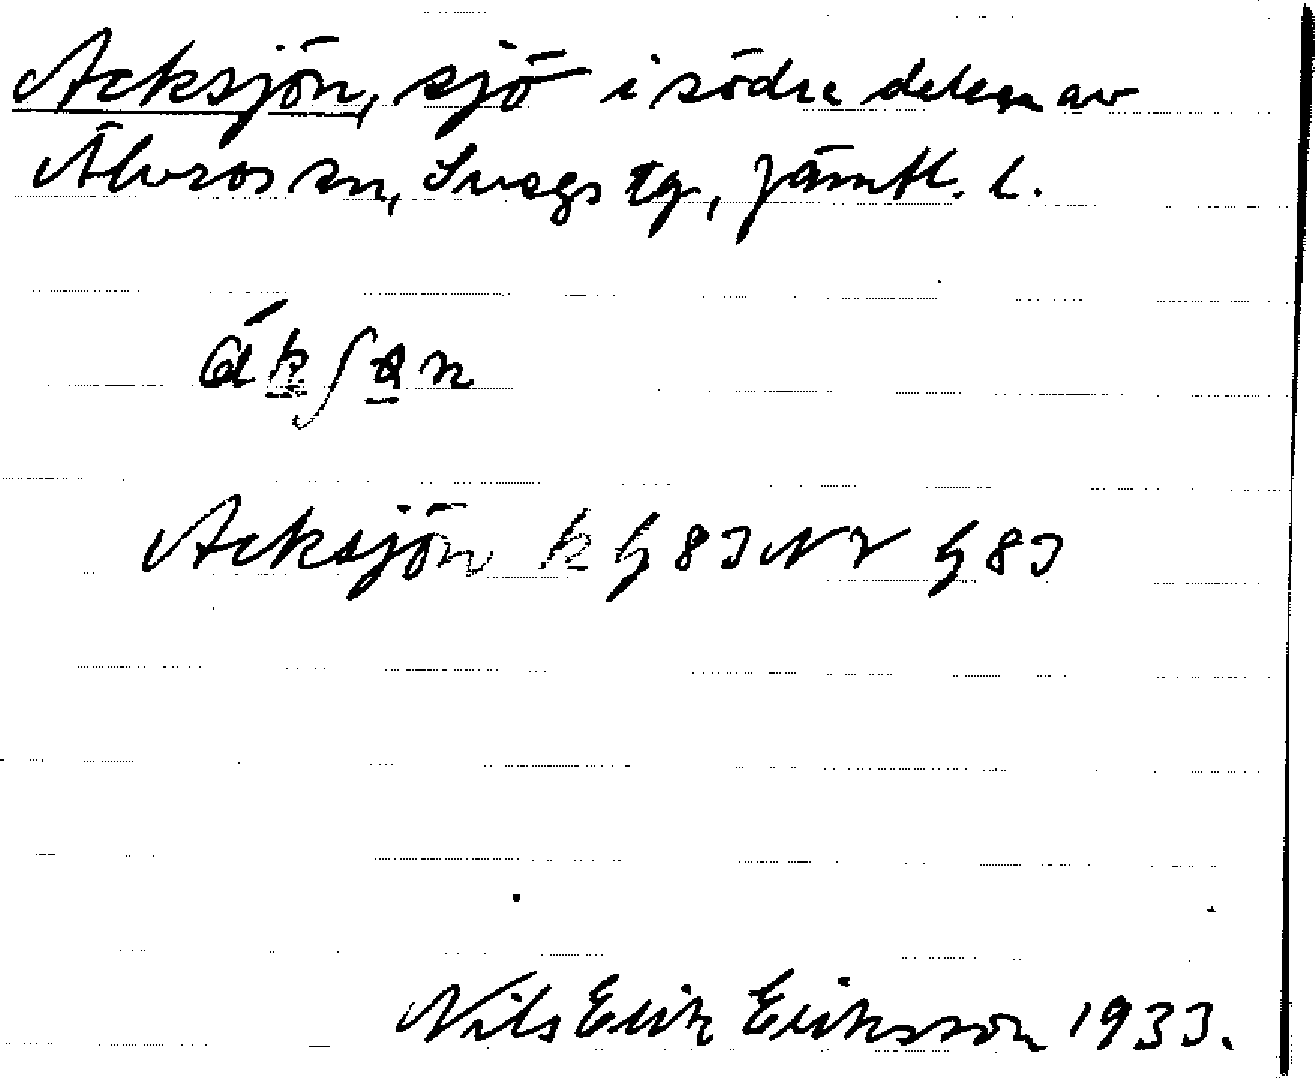 Acksjön, sjö i södra delen av
Älvros sn, Svegs tg, Jämtl. l.
Acksjön k G 83 NV G 83
Nils Erik Eriksson 1933.